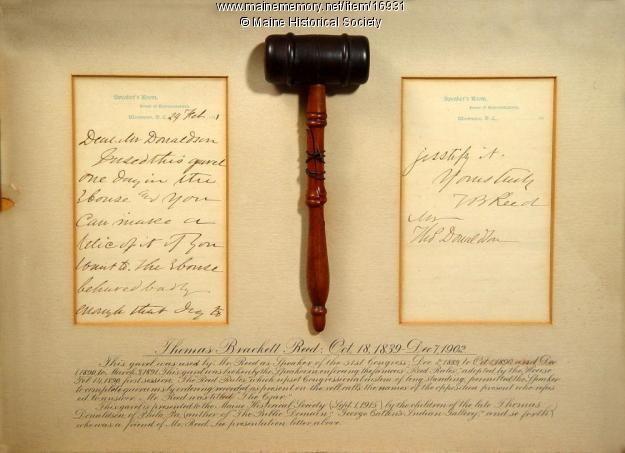 www.mainememory.net/item/16931
© Maine Historical Society
Speaker's Room,
House of Representatives,
Washington, D. C., 29 Feb.
Dear Mr Donaldson
I used this gavel
one day in the
House and you
can make a
relic of it if you
want to. The House
behaved badly
enough that day to
Speaker's Room,
House of Representatives,
Washington, D. C.,
justify it.
Yours truly
TB Reed
Mr
Thos Donaldson
Thomas Brackett Reed, Oct. 18, 1839 - Dec 7, 1902
This gavel was used by Mr. Reed as Speaker of the 51st Congress, Dec. 2, 1889, to Oct. 1890 and Dec.
1890 to March 3, 1891. This gavel was broken by the Speaker in enforcing the famous "Reed Rules" adopted by the House
Feb. 14, 1890, first session. The Reed Rules which upset Congressional custom of long standing, permitted the Speaker
to complete quorums by ordering recorded as present in the roll calls the names of the opposition present who refus-
ed to answer. Mr. Reed was titled "The Czar."
This gavel is presented to the Maine Historical Society (Sept. 1, 1915) by the children of the late Thomas
Donaldson of Phila. Pa. (author of "The Public Domain," "George Catlin's Indian Gallery," and so forth)
who was a friend of Mr. Reed. See presentation letter above.